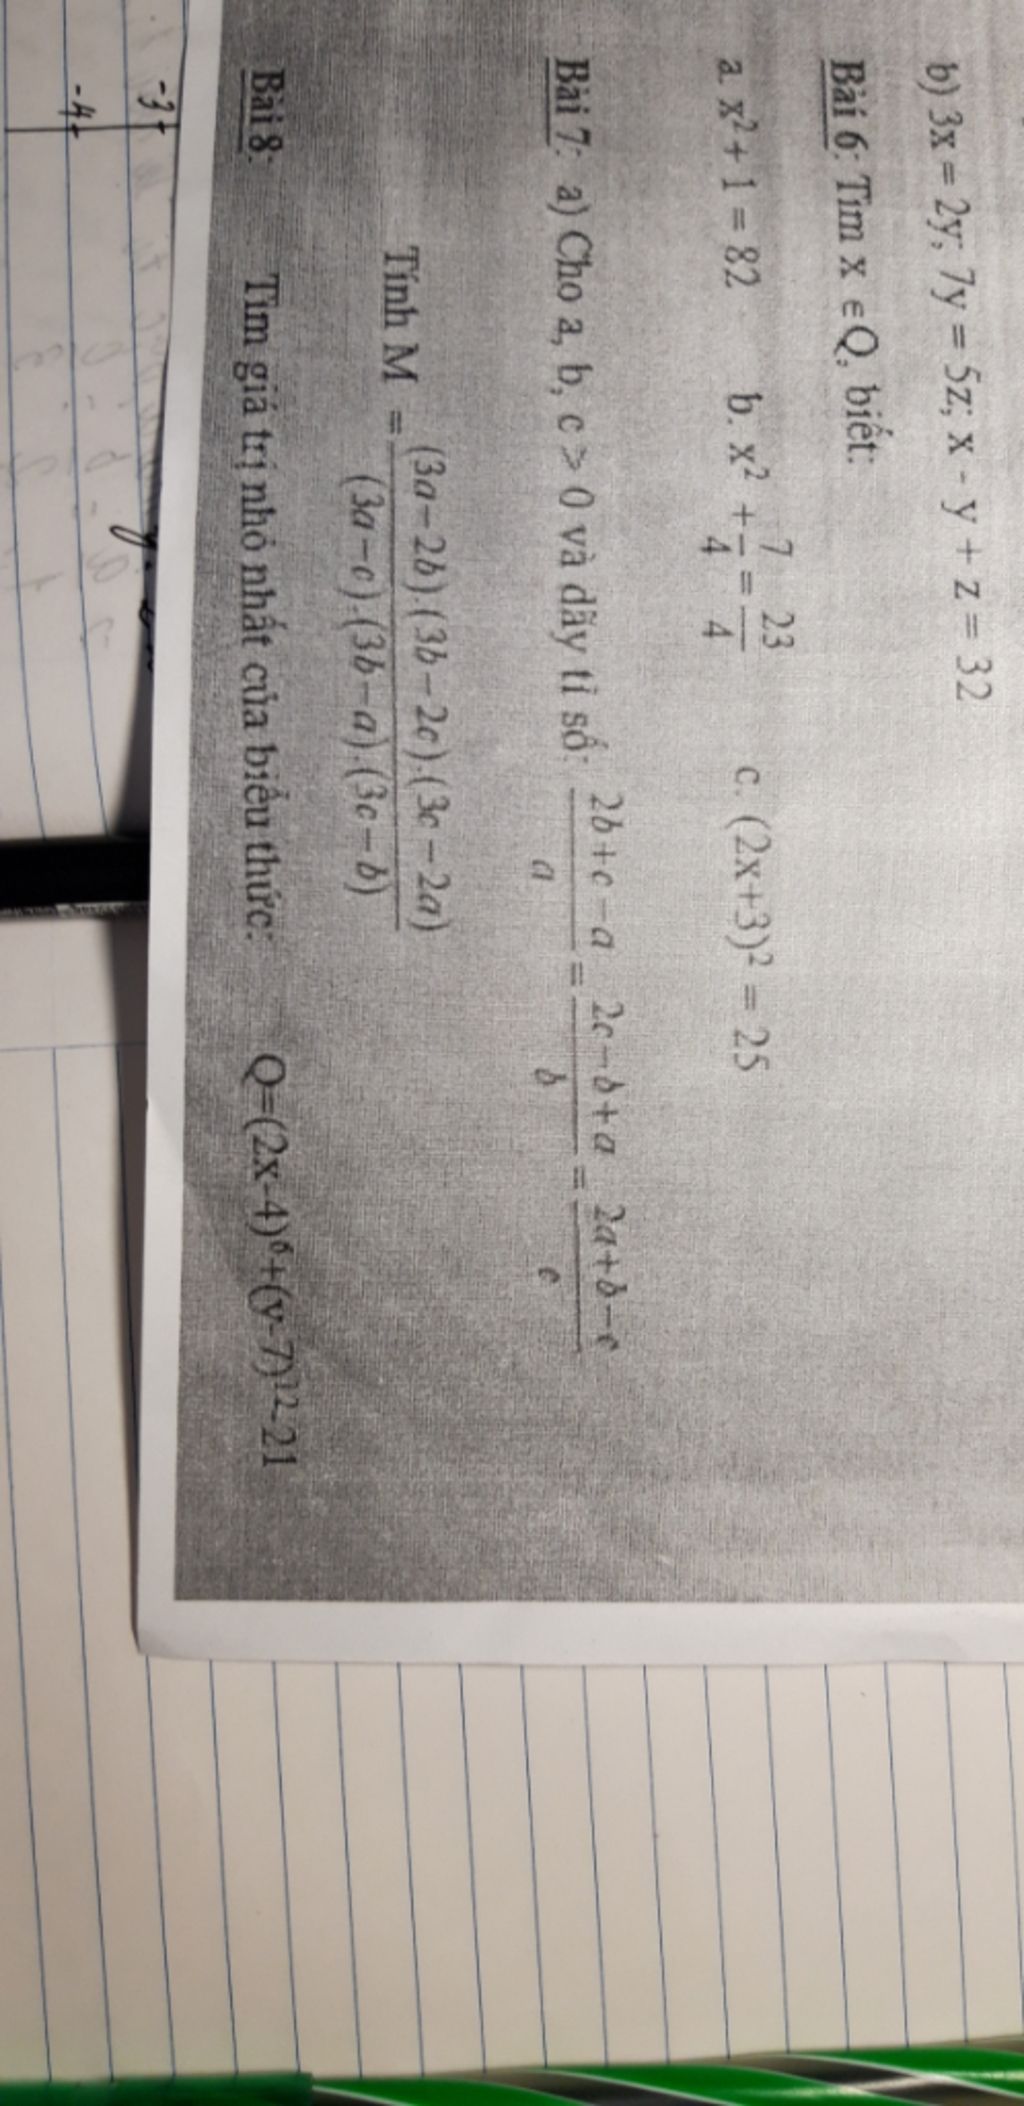 b) 3x = 2y; 7y = 5z; x - y + z = 32
Bài 6: Tìm x ∈Q, biết:
a. x² + 1 = 82 b. x² + 7/4 = 23/4 c. (2x+3)² = 25
Bài 7: a) Cho a, b, c > 0 và dãy tỉ số: (2b+c-a)/a = (2c-b+a)/b = (2a+b-c)/c
Tính M = ((3a-2b).(3b-2c).(3c-2a))/((3a-c).(3b-a).(3c-b))
Bài 8: Tìm giá trị nhỏ nhất của biểu thức: Q=(2x-4)⁶+(y-7)¹²-21
-3
-4